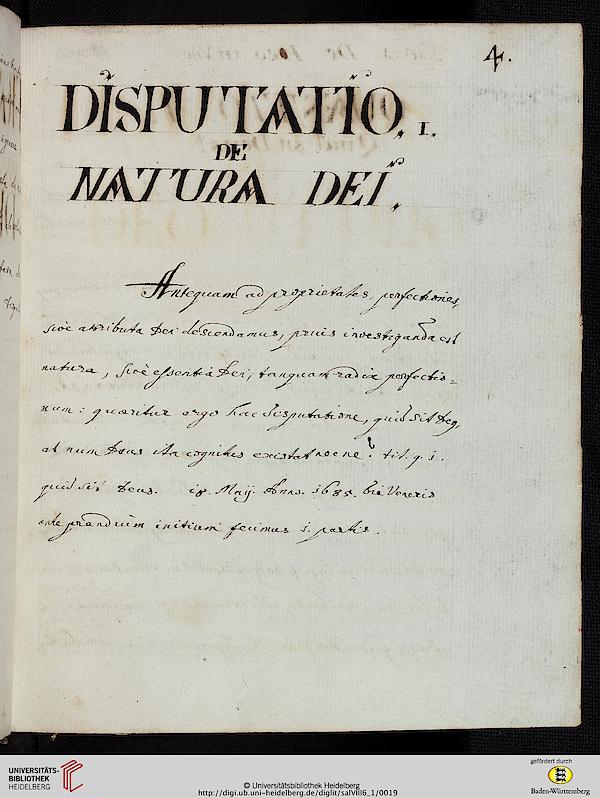 4.
DISPUTATIO. I.
DE
NATURA DEI.
Antequam ad proprietates, perfectiones,
sivè attributa Dei descendamus, priùs investiganda est
natura, sivè essentia Dei, tanquam radix perfectio=
num: quæritur ergo hac disputatione, quid sit Deq,
at num Deus ita cognitus existat necne? tit. q. 1.
quid sit Deus. 18. Maij Anno. 1685. die Veneris
ante prandium initium fecimus 1. partis.
UNIVERSITÄTS-
BIBLIOTHEK
HEIDELBERG
© Universitätsbibliothek Heidelberg
http://digi.ub.uni-heidelberg.de/diglit/salVIII6_1/0019
gefördert durch
Baden-Württemberg